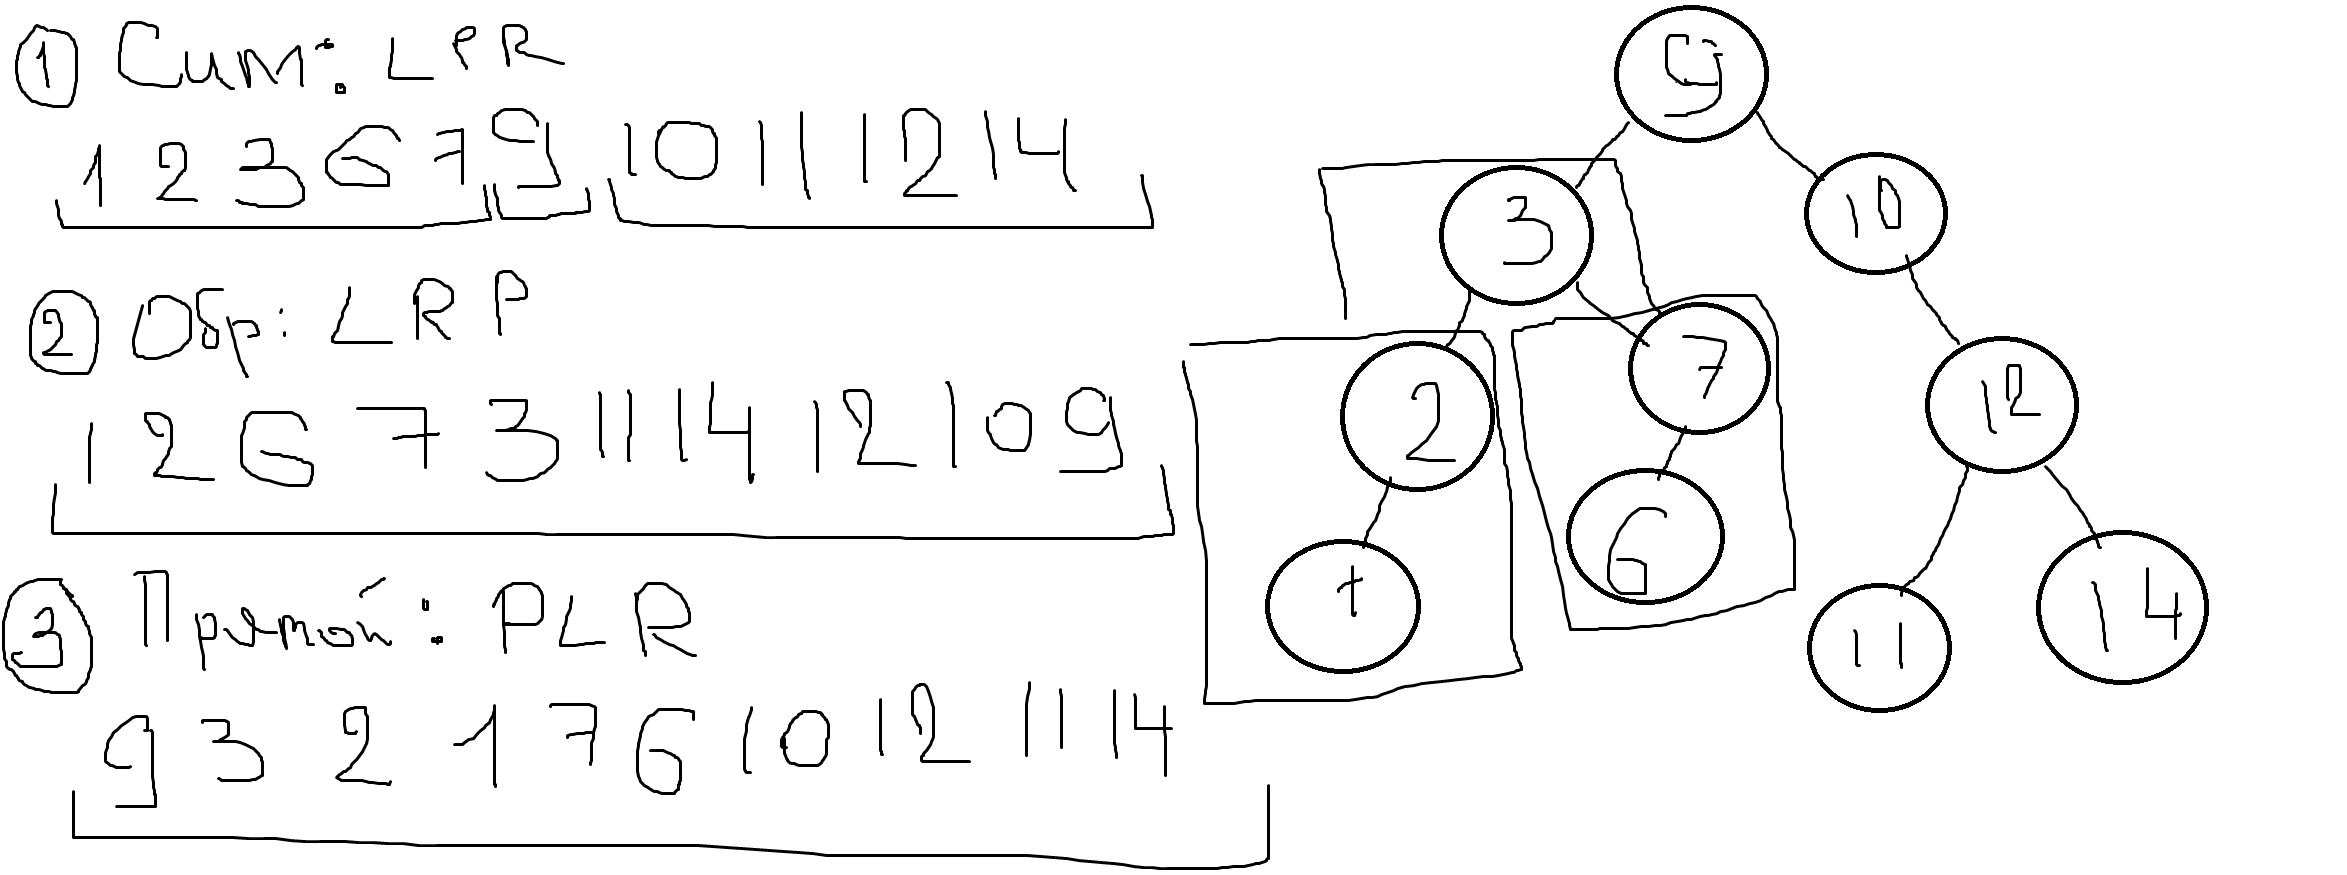 1 Сим: LPR
1 2 3 6 7 9 10 11 12 14
2 Обр: LRP
1 2 6 7 3 11 14 12 10 9
3 Прямой: PLR
9 3 2 1 7 6 10 12 11 14
9
3 10
2 7 12
1 6 11 14